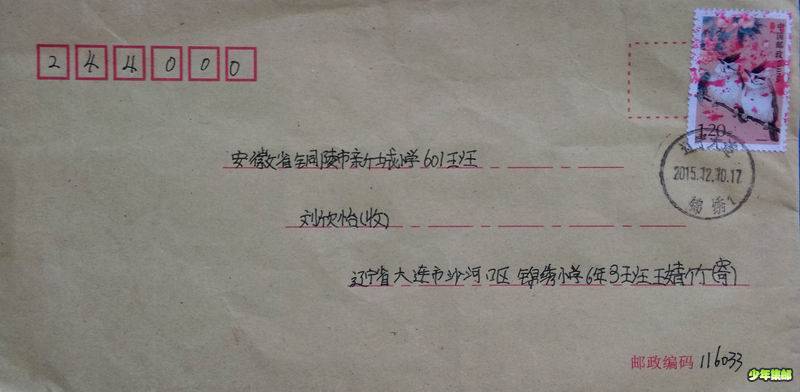 244000
中国邮政
1.20
2015.12.10.17
锦绣
安徽省铜陵市新城小学601班
刘欣怡(收)
辽宁省大连市沙河口区 锦绣小学6年3班 王婧竹(寄)
邮政编码 116033
少年集邮